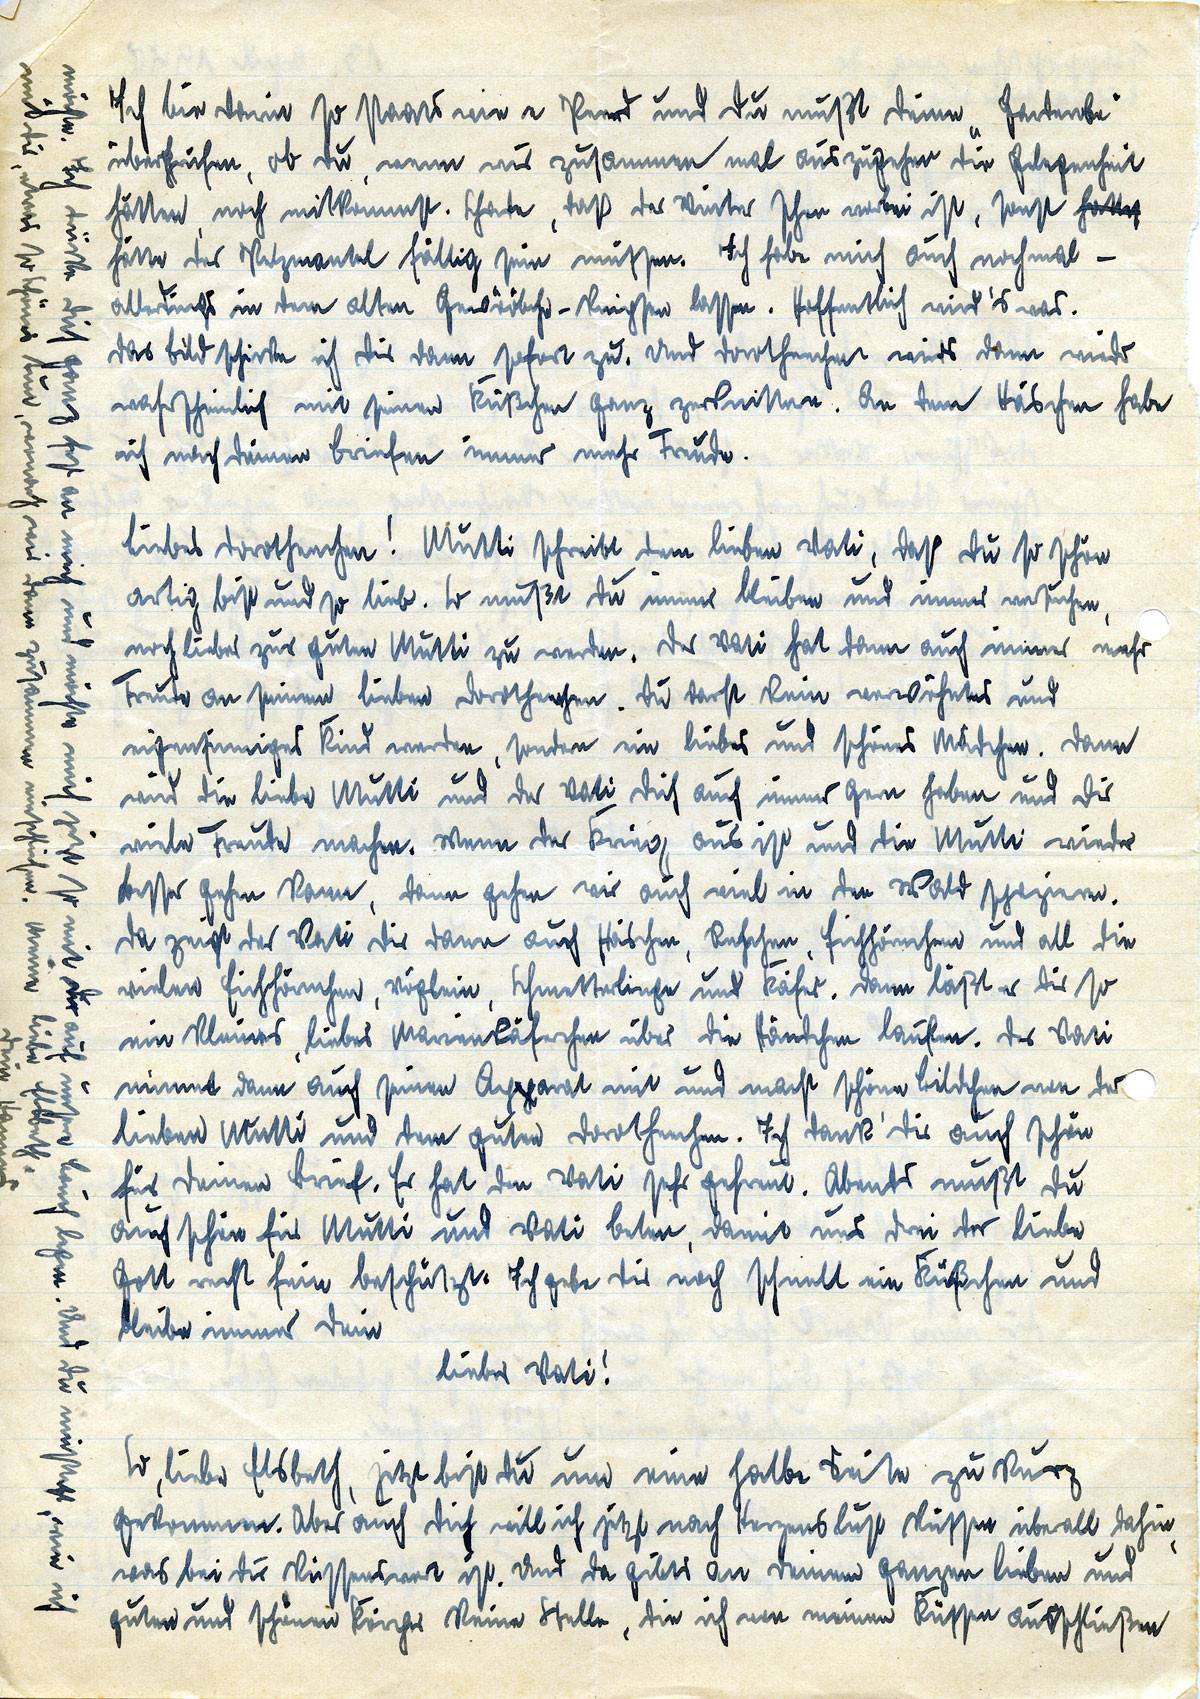 Ich bin darin so staats wie e Peerd und Du mußt deine „Garderobe"
überprüfen, ob du, wenn wir zusammen mal auszugehen die Gelegenheit
hätten, noch mitkommst. Schade, daß der Winter schon vorbei ist, sonst hätte
hätte der Pelzmantel fällig sein müssen. Ich habe mich auch nochmal –
allerdings in dem alten – knipsen lassen. Hoffentlich wird's was.
Das Bild schicke ich dir dann sofort zu. Und Dorothenchen wirds dann wieder
wahrscheinlich mit seinen Küßchen ganz zerknittern. An dem Häschen habe
ich nach deinen Briefen immer mehr Freude.
Liebes Dorothenchen! Mutti schreibt dem lieben Vati, daß Du so schön
artig bist und so lieb. So mußt Du immer bleiben und immer versuchen,
noch lieber zur guten Mutti zu werden. Der Vati hat dann auch immer mehr
Freude an seinem lieben Dorothenchen. Du darfst kein verwöhntes und
eigensinniges Kind werden, sondern ein liebes und schönes Mädchen. Dann
wird die liebe Mutti und der Vati Dich auch immer gern haben und Dir
viele Freude machen. Wenn der Krieg aus ist und die Mutti wieder
besser gehen kann, dann gehen wir auch viel in den Wald spazieren.
Da zeigt der Vati Dir dann auch Häschen, Rehchen, Eichhörnchen und all die
vielen Eichhörnchen, Vöglein, Schmetterlinge und Käfer. Dann läßt er Dir so
ein kleines, liebes Marienkäferchen über die Händchen laufen. Der Vati
nimmt dann auch seinen Apparat mit und macht schöne Bildchen von der
lieben Mutti und dem guten Dorothenchen. Ich dank' Dir auch schön
für Deinen Brief. Er hat den Vati sehr gefreut. Abends mußt Du
auch schön für Mutti und Vati beten, damit uns drei der liebe
Gott recht fein beschützt. Ich gebe Dir noch schnell ein Küßchen und
bleibe immer Dein
lieber Vati!
So, liebe Elsbeth, jetzt bist Du um eine halbe Seite zu kurz
gekommen. Aber auch Dich will ich jetzt nach Herzenslust küssen überall dahin,
was bei dir küssenswert ist. Und da gibts an Deinem ganzen lieben und
guten und schönen Körper keine Stelle, die ich von meinen Küssen ausschließen
möchte. Ich drücke Dich ganz fest an mich und möchte mich jetzt so mit Dir auf unsere Couch legen. Und Du müßtest, wie ich
mit dir, schön tun, wonach wir dann zusammen einschliefen. Meine liebe Elsbeth.
Dein Hermann